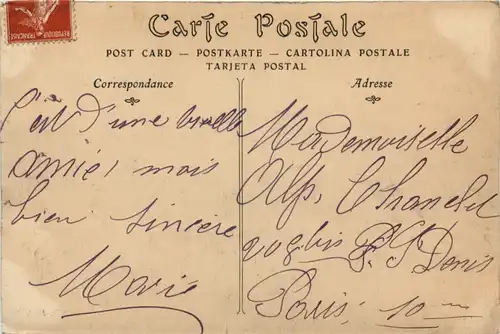 REPUBLIQUE FRANÇAISE
Carte Postale
POST CARD — POSTKARTE — CARTOLINA POSTALE
TARJETA POSTAL
Correspondance
C'est d'une
amie, mais
bien sincère
Marie
Adresse
Mademoiselle
Alp.
bis F. S Denis
Paris. 10